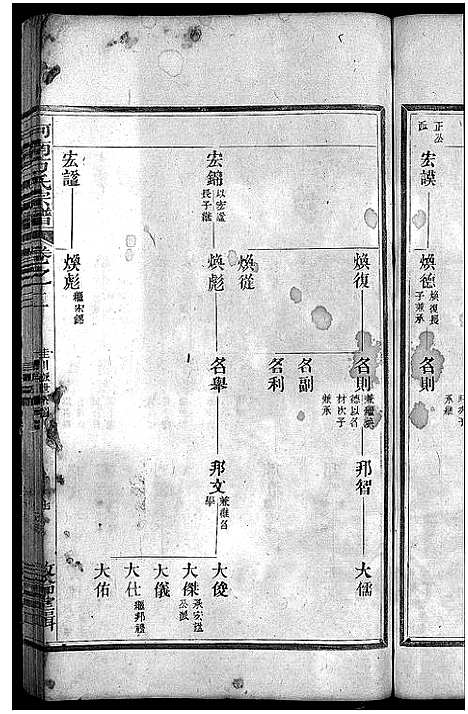 正公
宏謨
煥德
煥復長
子兼承
名則
承繼
煥復
名則
兼繼煥
德以名
材次子
兼承
邦智
大儒
名副
名利
煥從
宏錦
以宏謐
長子繼
煥彪
名舉
邦文
兼繼名
學
大俊
大傑
承宏謐
公派
大儀
大仕
繼邦禮
大佑
宏謐
煥彪
繼宏錦
河南
氏宗譜
卷之